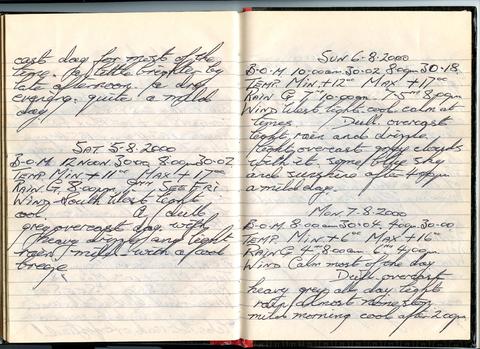 cast day for most of the
time. A little brighter by
late afternoon & dry
evening. quite a mild
day.
SAT 5-8-2000
B-O-M 12 NOON 30·00 8:00pm 30·02
TEMP Min +11°° Max +17°°
RAIN G. 8:00pm SEE FRI
WIND South West light
cool. A dull
grey overcast day with
heavy drizzle and light
rain, mild with a cool
breeze
SUN 6-8-2000
B-O-M 10:00am 30·02 8:00pm 30·18
TEMP Min +12°° Max +17°°
RAIN G 10:00am 8:00pm
WIND West light cool calm at
times. Dull overcast
light rain and drizzle
grey clouds
with some blue sky
and sunshine after 4:00pm
a mild day.
MON 7-8-2000
B-O-M 8:00am 30·04 4:00pm 30·00
TEMP. Min +6°° Max +16°°
RAIN G 8:00am 4:00pm
WIND Calm most of the day
Dull overcast
heavy grey all day light
rain almost nonestop
mild morning cool after 2:00pm